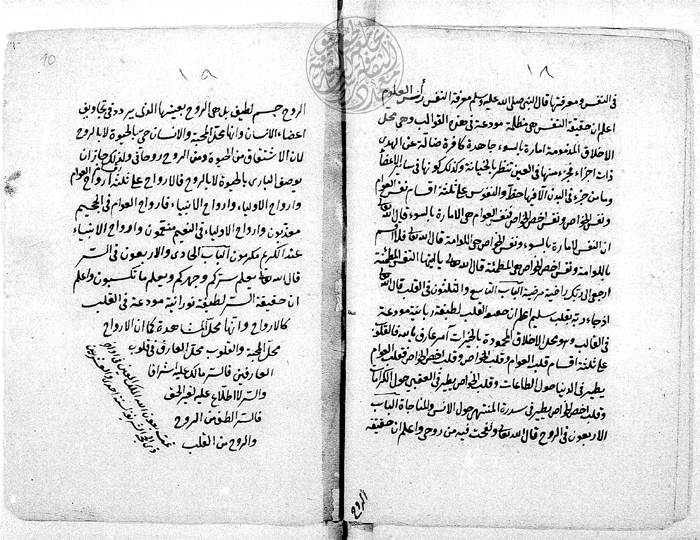 ١٨
فى النفس ومعرفتها قال النبى صلى الله عليه وسلم معرفة النفس رأس العلوم
اعلم ان حقيقة النفس هى مظلمة مودعة فى هذه القوالب وهى محل
الاخلاق المذمومة امارة بالسوء جاهدة كافرة ضالة عن الهدى
ذات اجزاء فجزء منها فى العين تنظر بالخيانة وكذلك كونها فى ساير الاعضاء
وما من جزء فى البدن الا فيها حظا والنفوس على ثلثة اقسام نفس العوام
ونفس الخواص ونفس اخص الخواص فنفس العوام هى الامارة بالسوء قال الله تعالى
ان النفس لامارة بالسوء ونفس الخواص هى اللوامة قال الله تعالى فلا اقسم
باللوامة ونفس اخص الخواص هو المطمئنة قال الله تعالى يا ايتها النفس المطمئنة
ارجعى الى ربك راضية مرضية الباب التاسع والثلثون فى القلب قال الله تعالى
اذ جاء ربه بقلب سليم اعلم ان حقيقة القلب لطيفة ربانية مودعة
فى القالب وهو محل الاخلاق المحمودة بالخيرات آمر عارف بالله فالقلوب
على ثلثة اقسام قلب العوام وقلب الخواص وقلب اخص الخواص فقلب العوام
يطير فى الدنيا حول الطاعات وقلب الخواص يطير فى العقبى حول الكرامات
وقلب اخص الخواص يطير فى سدرة المنتهى حول الانس والمناجاة الباب
الاربعون فى الروح قال الله تعالى ونفخت فيه من روحى واعلم ان حقيقة
الروح
١٩
10
الروح جسم لطيف بل هى الروح بعينها الذى يردد فى تجاويف
اعضاء الانسان وانها محل المحبة والانسان حى بالحيوة لا بالروح
لان الاشتقاق من الحيوة ومن الروح روحانى ولغير ذلك جاز ان
يوصف البارى بالحيوة لا بالروح فالارواح على ثلثة اقسام ارواح العوام
وارواح الاولياء وارواح الانبياء فارواح العوام فى الجحيم
معذبون وارواح الاولياء فى النعيم متنعمون وارواح الانبياء
عند الكريم مكرمون الباب الحادى والاربعون فى السر
قال الله تعالى يعلم سركم وجهركم ويعلم ما تكسبون واعلم
ان حقيقة السر لطيفة نورانية مودعة فى القلب
كالارواح وانها محل المشاهدة كما ان الارواح
محل المحبة والقلوب محل المعارف فى قلوب
العارفين فالسر مالك عليه اشراقا
والسر لا اطلاع عليه لغير الحق
فالسر الطف من الروح
والروح من القلب
تمت بعون الله الملك